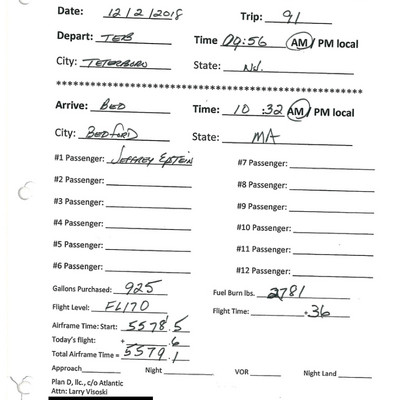 Date: 12/2/2018 Trip: 91
Depart: TEB Time 09:56 AM / PM local
City: TETERBORO State: NJ.
************************************************************
Arrive: BED Time: 10:32 AM / PM local
City: BEDFORD State: MA
#1 Passenger: JEFFREY EPTEIN #7 Passenger:
#2 Passenger: #8 Passenger:
#3 Passenger: #9 Passenger:
#4 Passenger: #10 Passenger:
#5 Passenger: #11 Passenger:
#6 Passenger: #12 Passenger:
Gallons Purchased: 925 Fuel Burn lbs. 2781
Flight Level: FL170 Flight Time: .36
Airframe Time: Start: 5578.5
Today's flight: + .6
Total Airframe Time = 5579.1
Approach Night VOR Night Land
Plan D, llc., c/o Atlantic
Attn: Larry Visoski